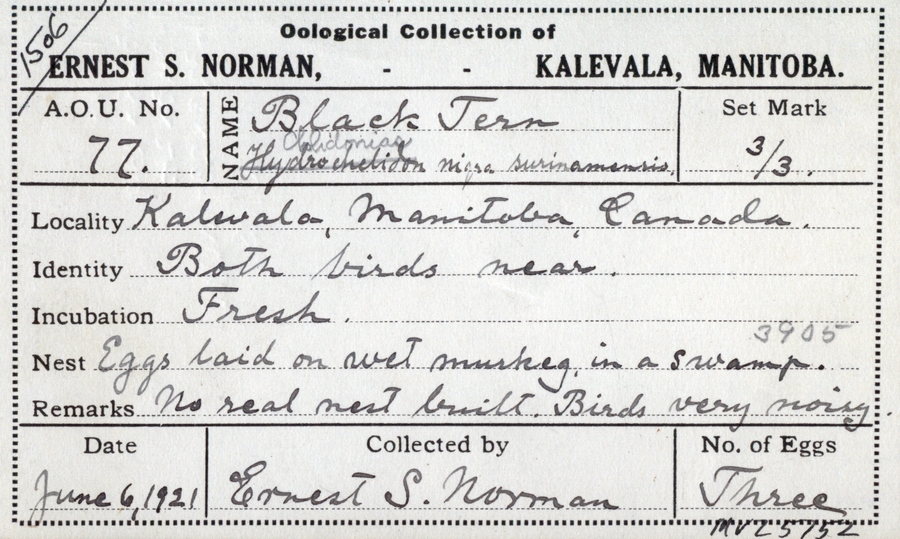 1506
Oological Collection of
ERNEST S. NORMAN, - - KALEVALA, MANITOBA.
A.O.U. No.
77.
NAME
Black Tern
Chlidonias
Hydrochelidon nigra surinamensis.
Set Mark
3/3.
Locality Kalevala, Manitoba, Canada.
Identity Both birds near.
Incubation Fresh.
3905
Nest Eggs laid on wet muskeg, in a swamp.
Remarks No real nest built. Birds very noisy.
Date
June 6, 1921
Collected by
Ernest S. Norman
No. of Eggs
Three
MVZ5752